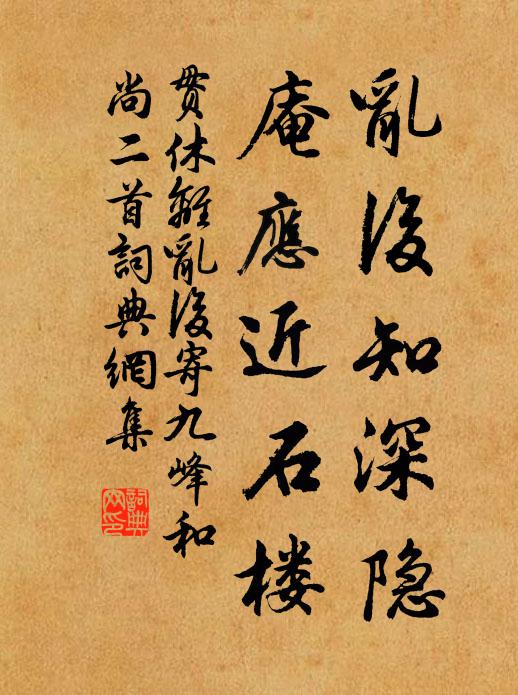 亂後知深隐
庵應近石楼
貫休離亂後寄九峰和
尚二首詞典網集
詞典
网印